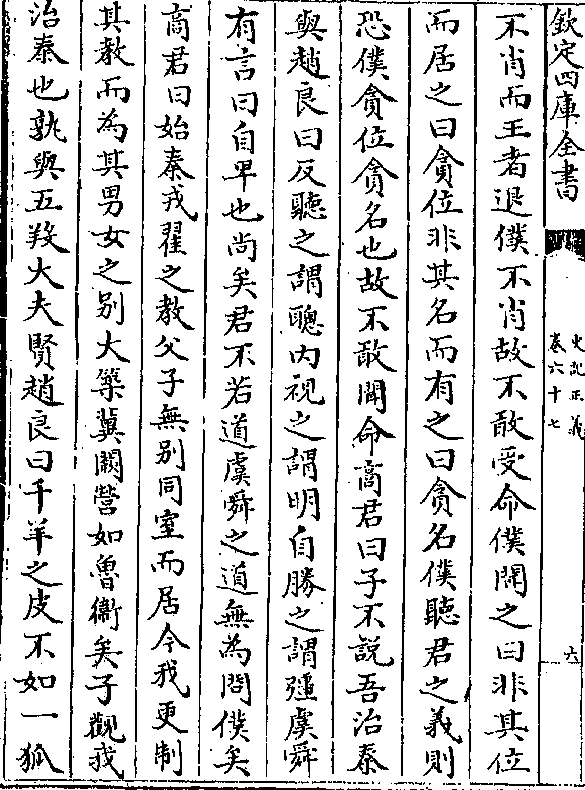 欽定四庫全書
史記正義
卷六十七
六
不肖而王者退僕不肖故不敢受命僕聞之曰非其位
而居之曰貪位非其名而有之曰貪名僕聽君之義則
恐僕貪位貪名也故不敢聞命商君曰子不説吾治秦
與趙良曰反聽之謂聰内視之謂明自勝之謂彊虞舜
有言曰自卑也尚矣君不若道虞舜之道無為問僕矣
商君曰始秦戎翟之教父子無别同室而居今我更制
其教而為其男女之别大築冀闕營如魯衞矣子觀我
治秦也孰與五羖大夫賢趙良曰千羊之皮不如一狐